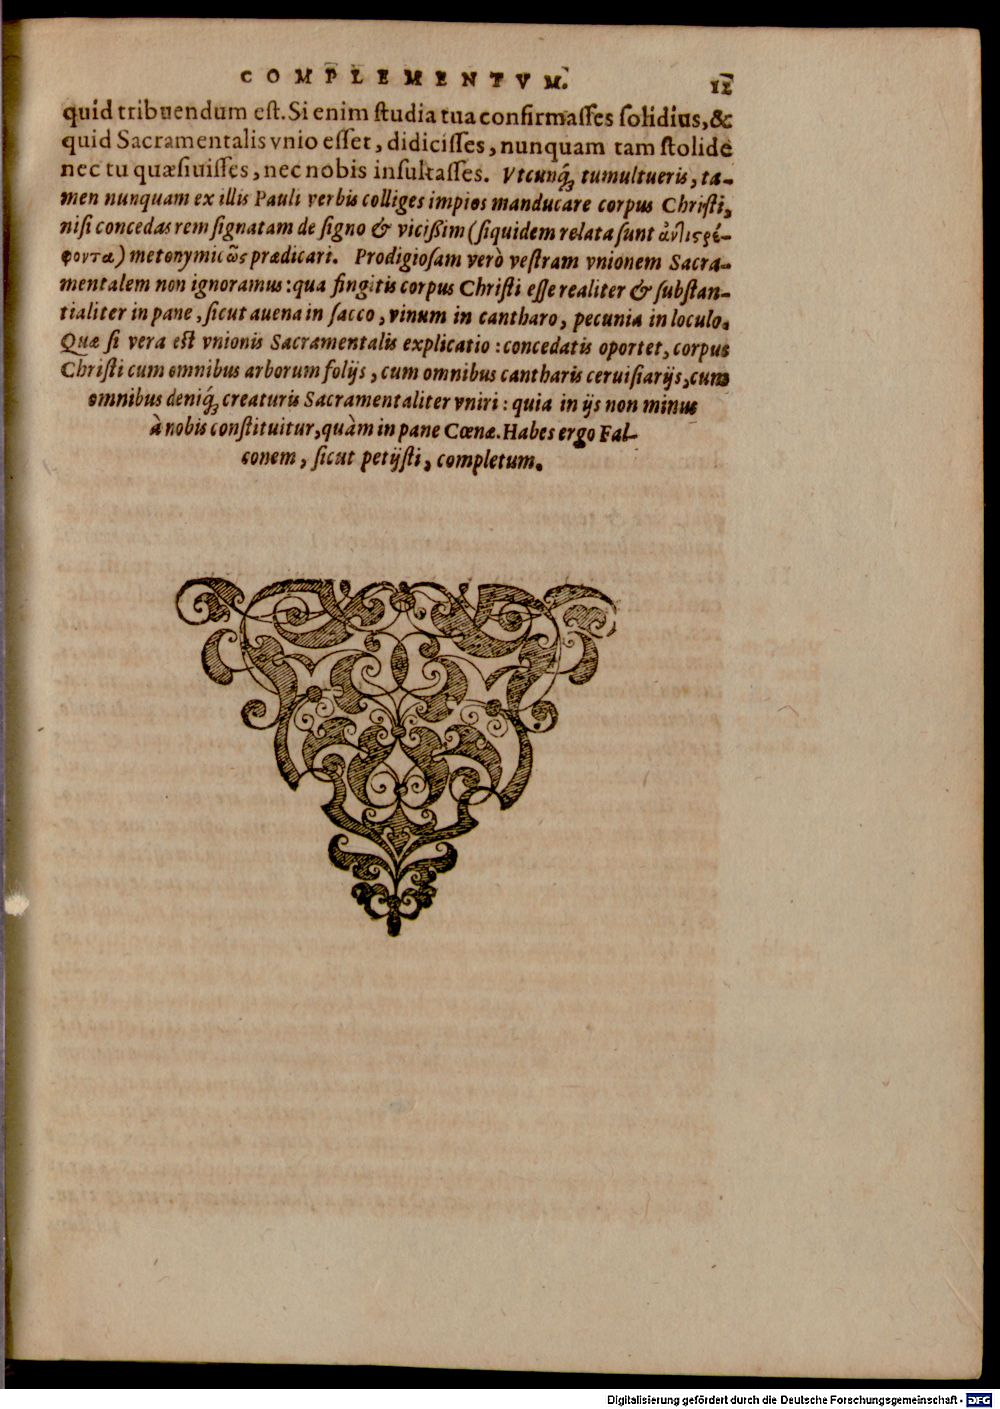 COMPLEMENTVM. 12
quid tribuendum est. Si enim ſtudia tua confirmaſſes ſolidius, &
quid Sacramentalis vnio eſſet, didiciſſes, nunquam tam ſtolide
nec tu quæſiuiſſes, nec nobis inſultaſſes. Vtcunq́ꝫ tumultueris, ta-
men nunquam ex illis Pauli verbis colliges impios manducare corpus Chriſti,
niſi concedas rem ſignatam de ſigno & viciſſim (ſiquidem relata ſunt ἀντιςρέ-
φοντα) metonymicῶς prædicari. Prodigioſam verò veſtram vnionem Sacra-
mentalem non ignoramus: qua fingitis corpus Chriſti eſſe realiter & ſubſtan-
tialiter in pane, ſicut auena in ſacco, vinum in cantharo, pecunia in loculo.
Quæ ſi vera eſt vnionis Sacramentalis explicatio: concedatis oportet, corpus
Chriſti cum omnibus arborum folijs, cum omnibus cantharis ceruiſiarijs, cum
omnibus deniq́ꝫ creaturis Sacramentaliter vniri: quia in ijs non minus
à nobis conſtituitur, quàm in pane Cœnæ. Habes ergo Fal-
conem, ſicut petijſti, completum.
Digitalisierung gefördert durch die Deutsche Forschungsgemeinschaft - DFG